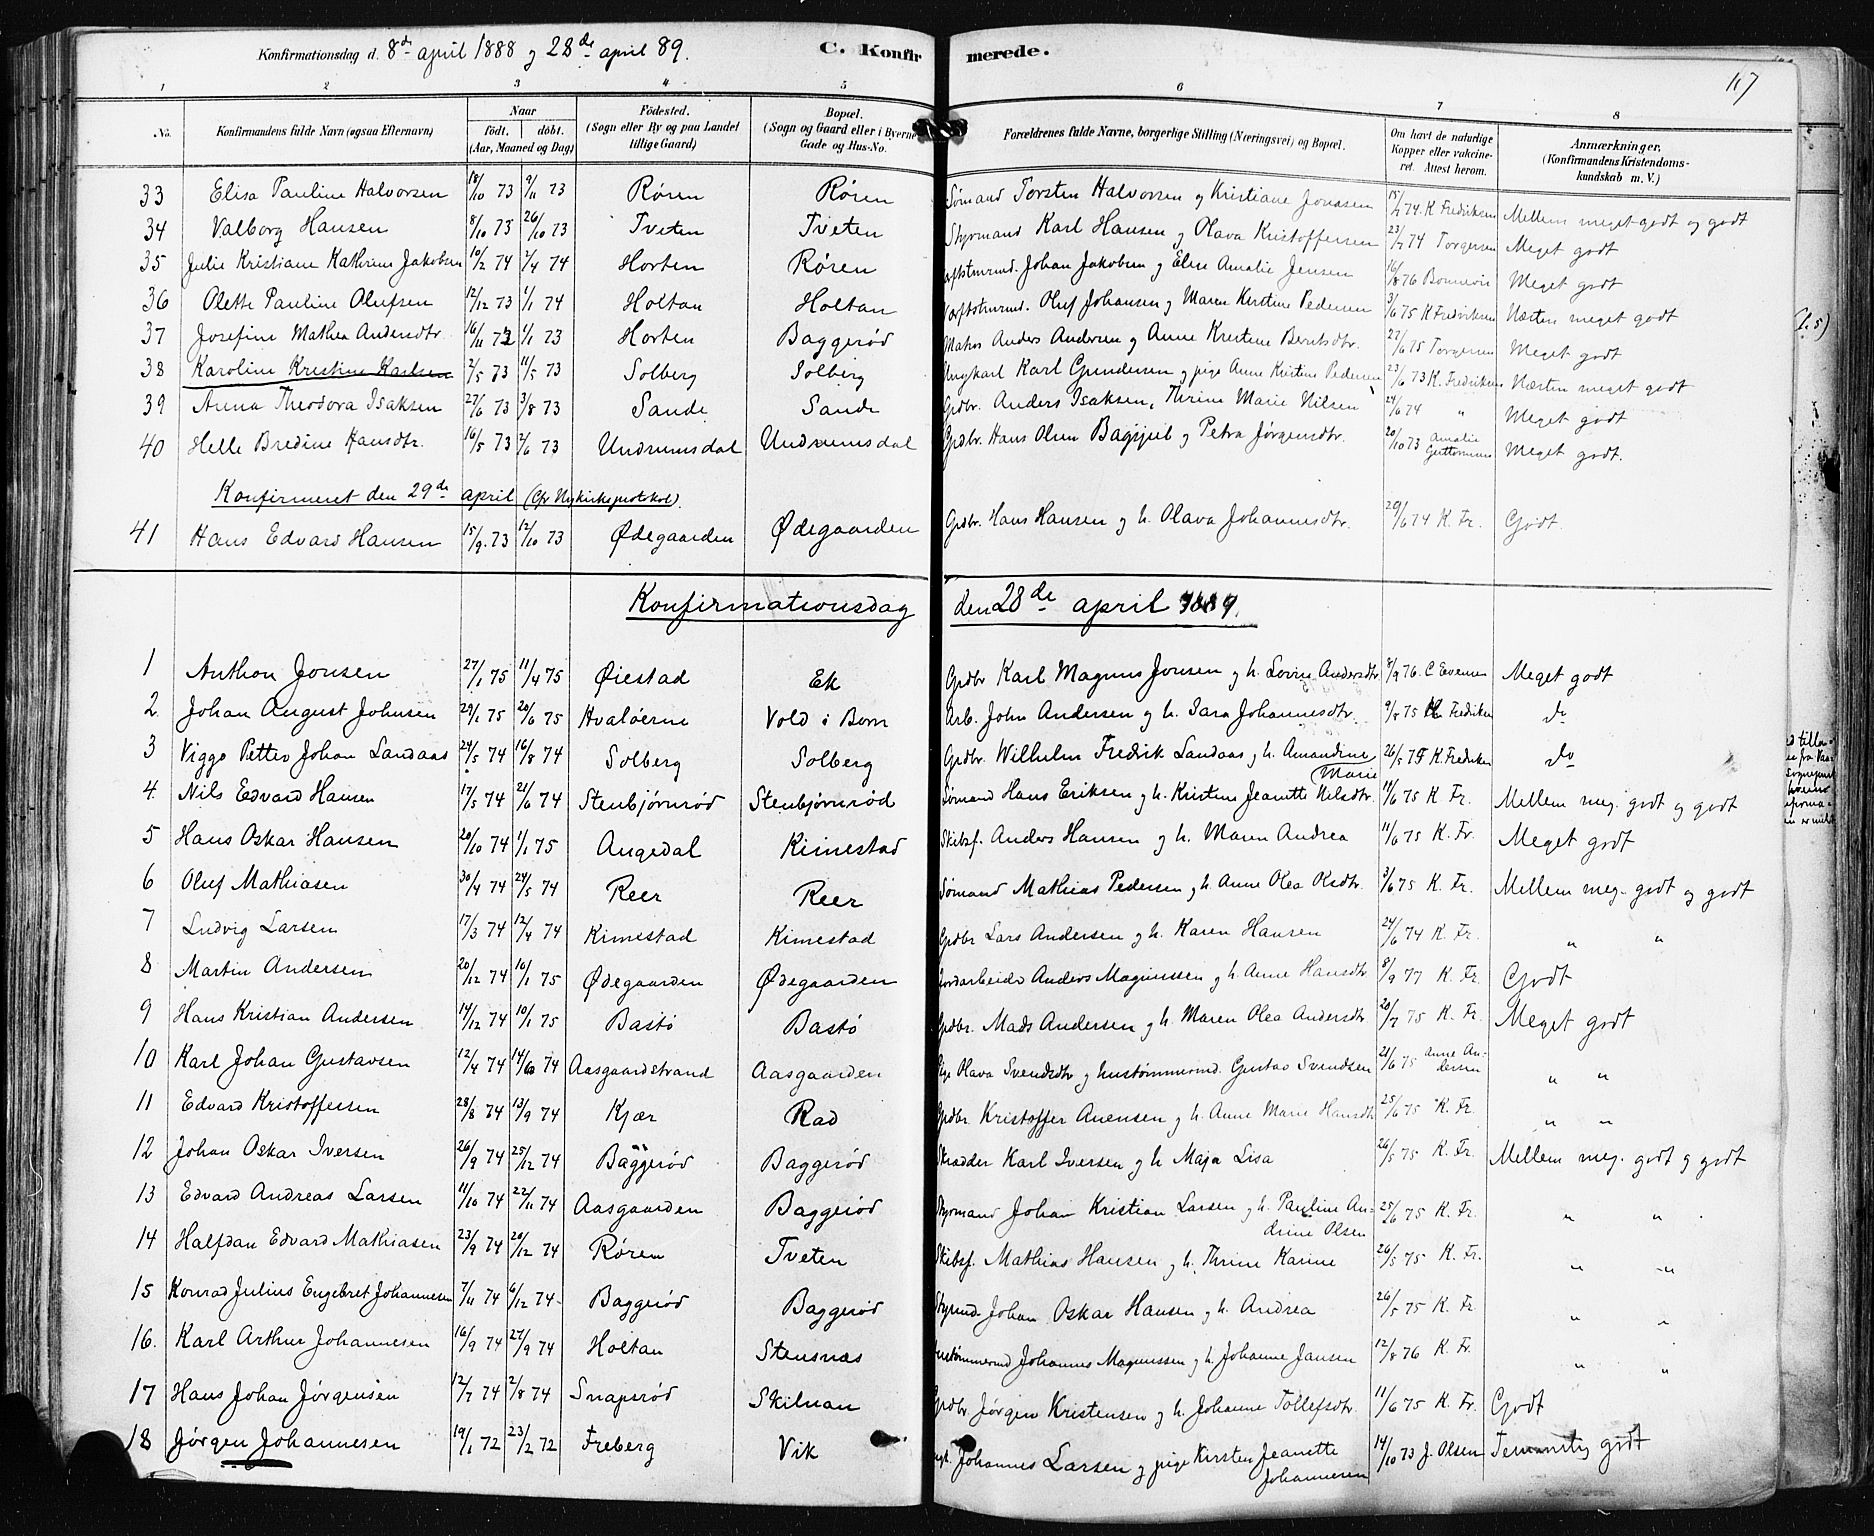 Konfirmationsdag d. 8de april 1888 og 28de april 89. C. Konfirmerede. 117
1 2 3 4 5 6 7 8
No. Konfirmandens fulde Navn (ogsaa Efternavn) Naar født. døbt. (Aar, Maaned og Dag) Fødested. (Sogn eller By og paa Landet tillige Gaard) Bopæl. (Sogn og Gaard eller i Byerne Gade og Hus-No. Forældrenes fulde Navne, borgerlige Stilling (Næringsvei) og Bopæl. Om havt de naturlige Kopper eller vakcineret. Attest herom. Anmærkninger, (Konfirmandens Kristendomskundskab m. V.)
33 Elisa Pauline Halvorsen 18/10 73 9/11 73 Røren Røren Sømand Torsten Halvorsen og Kristiane Jonasen 15/7 74 K Fredriksen Mellem meget godt og godt
34 Valborg Hansen 8/10 73 26/10 73 Tveten Tveten Styrmand Karl Hansen og Olava Kristoffersen 23/7 74 Torgersen Meget godt
35 Julie Kristiane Kathrine Jakobsen 10/2 74 7/4 74 Horten Røren Johan Jakobsen og Elise Amalie Jensen 16/8 76 Bonnevie Meget godt
36 Olette Pauline Olufsen 12/12 73 1/1 74 Holtan Holtan Oluf Johansen og Maren Kirstine Pedersen 3/6 75 K Fredriksen Næsten meget godt
37 Josefine Mathea Andersdtr. 16/11 72 1/1 73 Horten Baggerød Matros Anders Andersen og Anne Kirstine Berntsdtr. 27/6 75 Torgersen Meget godt
38 Karoline Kristine Karlsen 2/5 73 11/5 73 Solberg Solberg Ungkarl Karl Gundersen og pige Anne Kirstine Pedersen 23/6 73 K. Fredriksen Næsten meget godt
39 Anna Theodora Isaksen 27/6 73 3/8 73 Sande Sande Grdbr. Anders Isaksen, Thrine Marie Nilsen 24/6 74 " Meget godt
40 Helle Bredine Hansdtr. 16/5 73 2/6 73 Undrumsdal Undrumsdal Grdbr. Hans Olsen Bagsjeil og Petra Jørgensdtr. 20/10 73 Amalie Guttormsen Meget godt.
Konfirmeret den 29de april (Cfr Nykirkeprotokol).
41 Hans Edvard Hansen 15/9 73 12/10 73 Ødegaarden Ødegaarden Grdbr. Hans Hansen og h. Olava Johannesdtr. 29/6 74 K. Fr. Godt.
Konfirmationsdag den 28de april 1889.
1 Anthon Jonsen 27/1 75 11/4 75 Øiestad Ek Grdbr Karl Magnus Jonsen og h. Lovise Andersdtr 8/9 76. C Evensen Meget godt
2. Johan August Johnsen 29/1 75 20/6 75 Hvaløerne Vold i Born Arb. John Andersen og h. Sara Johannesdtr. 9/8 75 Fredriksen do
3 Viggo Petter Johan Landaas 24/5 74 16/8 74 Solberg Solberg Grdbr. Wilhelm Fredrik Landaas og h. Amandine Marie 26/5 75 K. Fredriksen do
4. Nils Edvard Hansen 17/5 74 21/6 74 Stenbjørnrød Stenbjørnrød Sømand Hans Eriksen og h. Kristine Jeanette Nilsdtr. 11/6 75 K Fr. Mellem meg. godt og godt
5 Hans Oskar Hansen 20/10 74 1/1 75 Augedal Kimestad Skibsf. Anders Hansen og h. Maren Andrea 11/6 75 K. Fr. Meget godt
6 Oluf Mathiasen 30/4 74 24/5 74 Reer Reer Sømand Mathias Pedersen og h. Anne Olea Olsdtr. 3/6 75 K. Fr. Mellem meg. godt og godt
7 Ludvig Larsen 17/3 74 12/4 74 Kimestad Kimestad Grdbr Lars Andersen og h. Karen Hansen 24/6 74 K. Fr. " "
8 Martin Andersen 20/12 74 10/1 75 Ødegaarden Ødegaarden Jordarbeider Anders Magnussen og h. Anne Hansdtr 8/9 77 K. Fr. Godt
9 Hans Kristian Andersen 14/12 74 10/1 75 Bastø Bastø Grdbr. Mads Andersen og h. Maren Olea Andersdtr 20/7 75 K. Fr. Meget godt
10 Karl Johan Gustavsen 12/4 74 14/10 74 Aasgaardstrand Aasgaarden Pige Olava Svendsdtr og hustømmermd. Gustav Svendsen 21/6 75 Anne Andersen " "
11 Edvard Kristoffersen 28/8 74 13/9 74 Kjær Rad Grdbr. Kristoffer Anensen og h. Anne Marie Hansdtr 25/6 75 K. Fr. " "
12 Johan Oskar Iversen 26/9 74 25/12 74 Baggerød Baggerød Skrædder Karl Iversen og h Maja Lisa 26/5 75 K. Fr. Mellem meg. godt og godt
13 Edvard Andreas Larsen 11/10 74 22/11 74 Aasgaarden Baggerød Styrmand Johan Kristian Larsen og h. Pauline Andrine Olsen 25/6 75 K. Fr. " "
14 Halfdan Edvard Mathiasen 23/9 74 29/12 74 Røren Tveten Skibsf. Mathias Hansen og h. Thrine Karine 26/5 75 K. Fr. " "
15 Konrad Julius Engebret Johannesen 7/11 74 6/12 74 Baggerød Baggerød Styrmd. Johan Oskar Hansen og h. Andrea 26/5 75 K. Fr " "
16. Karl Arthur Johannesen 16/9 74 27/9 74 Holtan Stensnæs Johannes Magnussen og h. Johanne Jansen 12/8 76 K Fr. " "
17 Hans Johan Jørgensen 12/7 74 2/8 74 Snapsrød Skiluan Grdbr. Jørgen Kristensen og h. Johanne Tollefsdtr. 11/6 75 K. Fr. Godt
18 Jørgen Johannesen 19/1 72 23/2 72 Freberg Vik Johannes Larsen og pige Kirsten Jeanette Johannesen 14/10 73 J. Olsen Temmelig godt